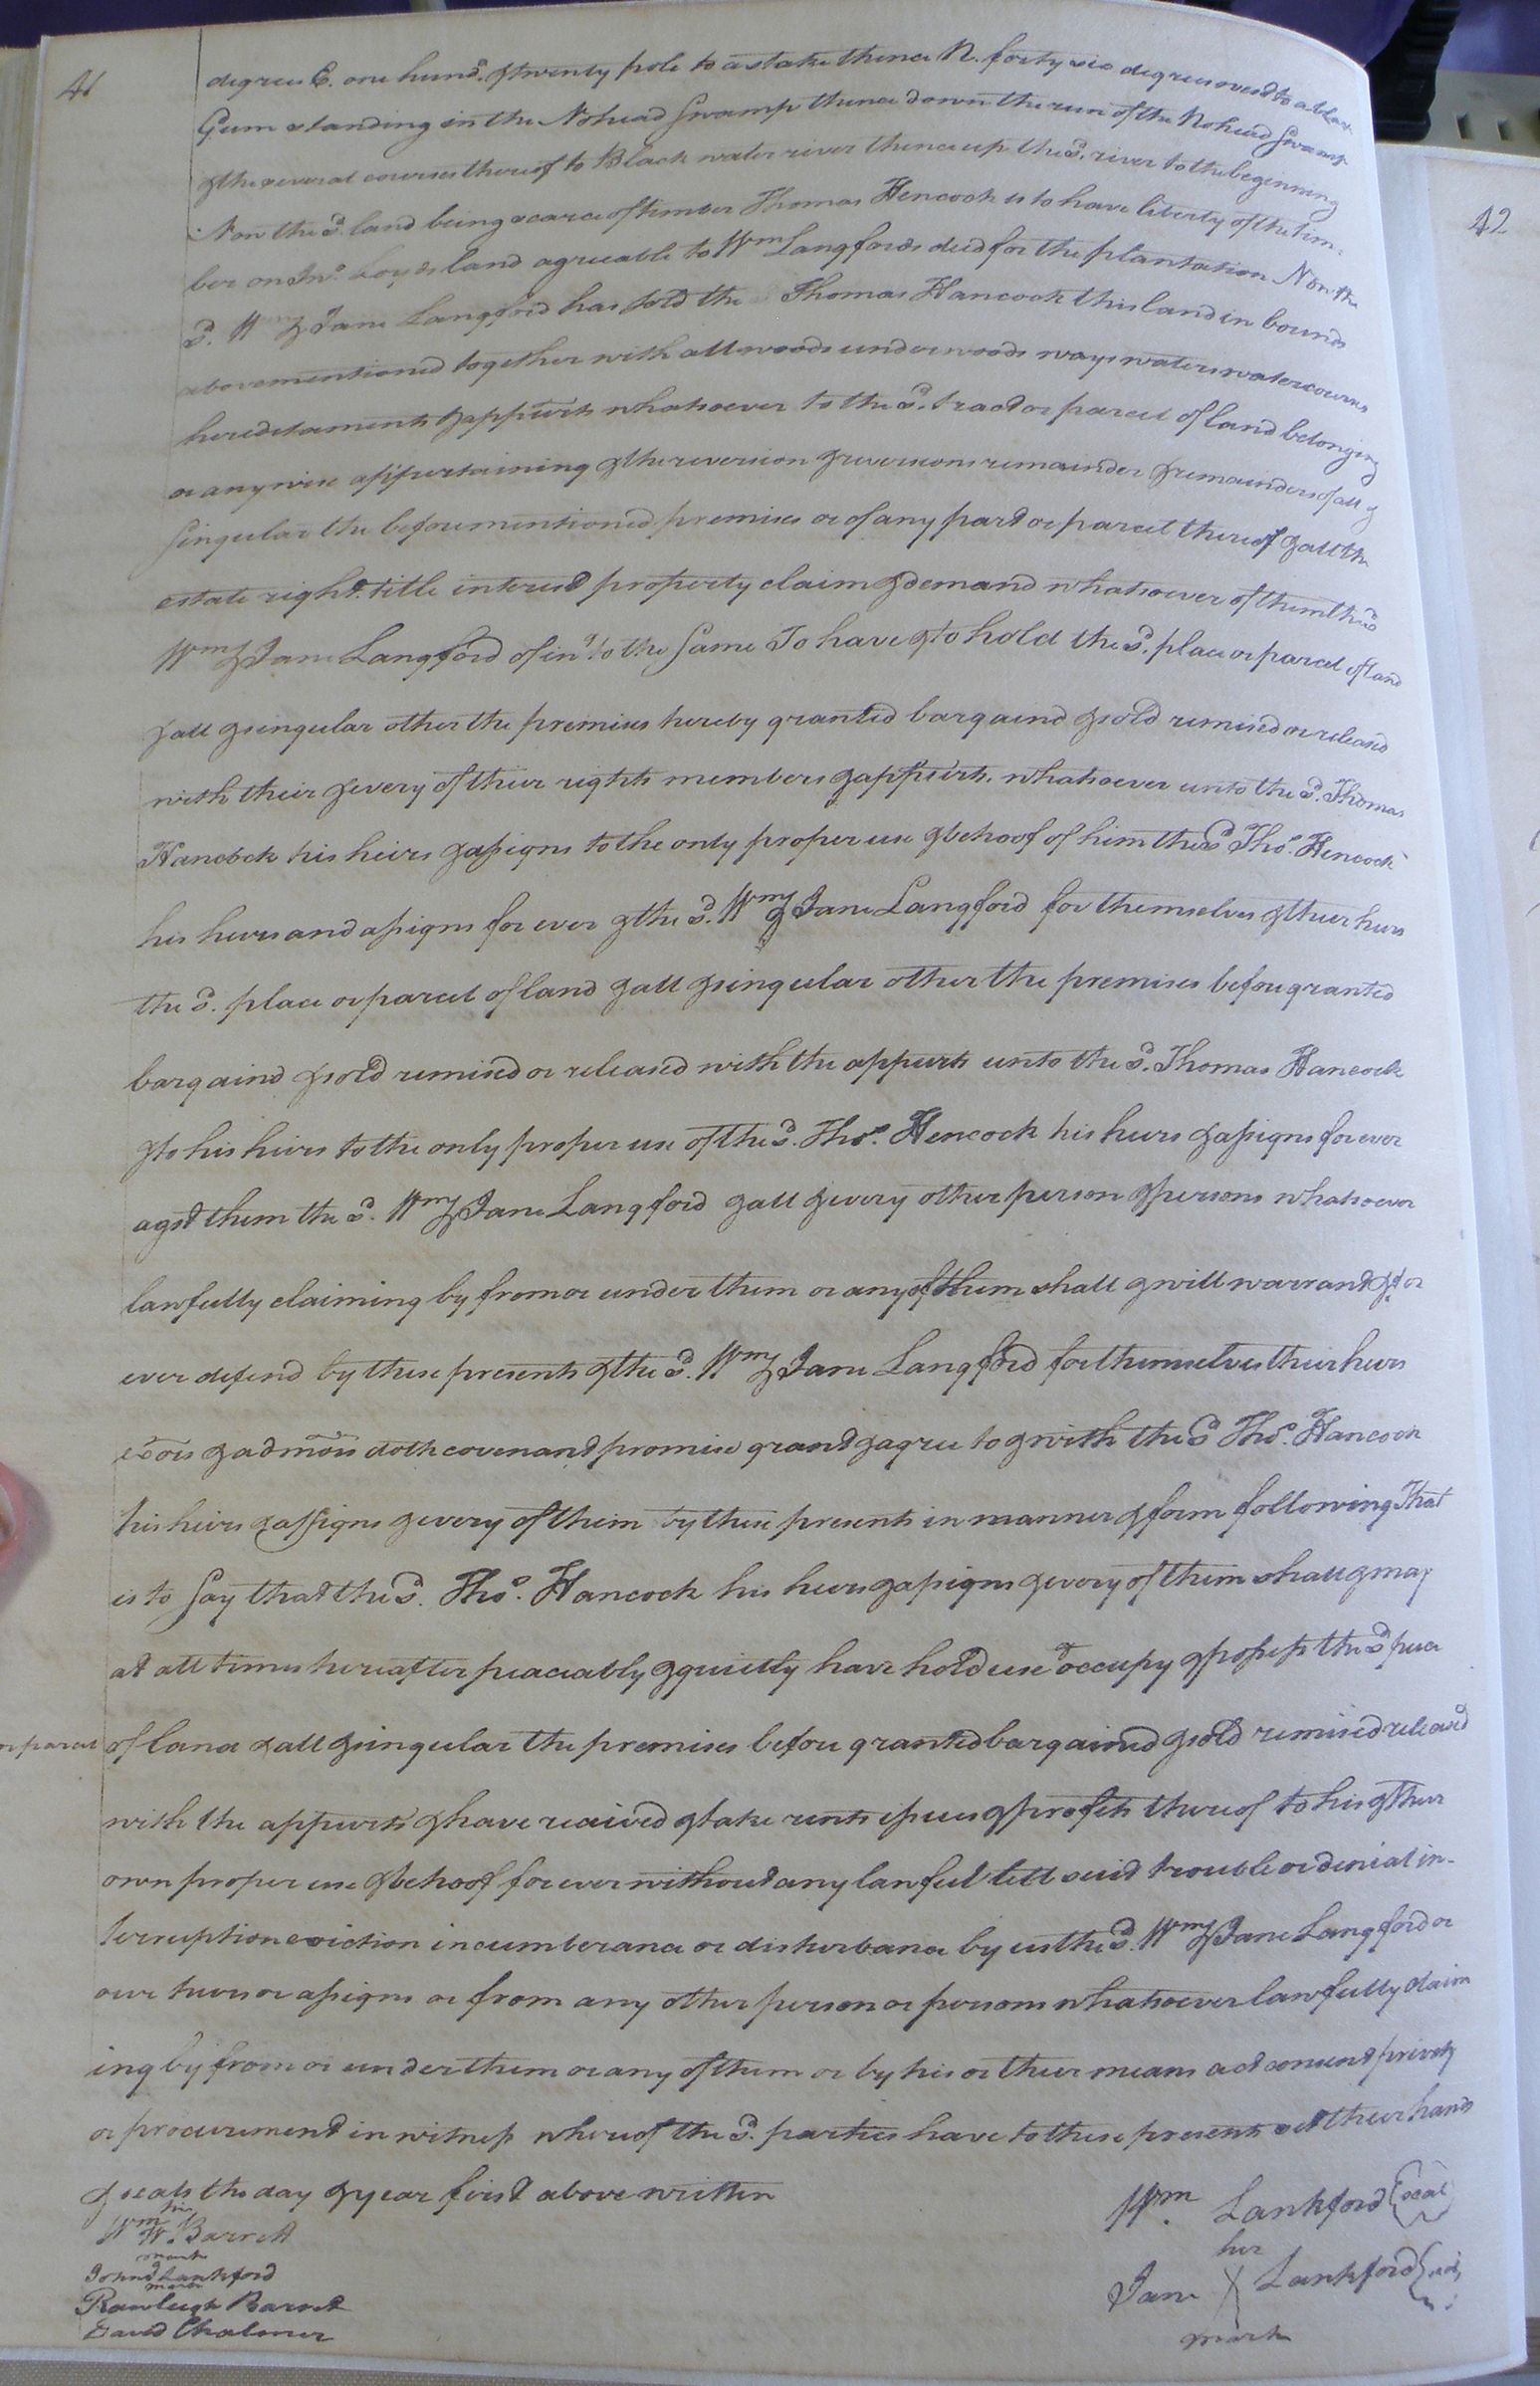 41
degrees E. one hund.d & twenty pole to a stake thence N. forty six degrees west to a black
Gum standing in the Nohead Swamp thence down the run of the Nohead Swamp
& the several courses thereof to Black water river thence up the sd. river to the beginning
Now the sd. land being scarce of timber Thomas Hencock is to have liberty of the tim-
ber on Jno. land agreeable to Wm Langfords deed for the plantation Now the
sd. Wm & Jane Langford has sold the Thomas Hancock this land in bounds
abovementioned together with all woods underwoods ways waters watercourses
hereditaments & appurts whatsoever to the sd. tract or parcel of land belonging
or any wise appertaining & the reversion & reversions remainder & remainders of all &
Singular the beforementioned premises or of any part or parcel thereof & all the
estate right title interest property claim & demand whatsoever of them the sd
Wm & Jane Langford of in to the Same To have & to hold the sd. place or parcel of land
& all & singular other the premises hereby granted bargaind & sold remised or released
with their & every of their rights members & appurts. whatsoever unto the sd. Thomas
Hancock his heirs & assigns to the only proper use & behoof of him the sd Thos. Hencock
his heirs and assigns for ever & the sd. Wm & Jane Langford for themselves & their heirs
the sd. place or parcel of land & all & singular other the premises before granted
bargaind & sold remised or released with the appurts unto the sd. Thomas Hancock
& to his heirs to the only proper use of the sd. Thos. Hencock his heirs & assigns for ever
agst them the sd. Wm & Jane Langford & all & every other person & persons whatsoever
lawfully claiming by from or under them or any of them shall & will warrant & for
ever defend by these presents & the sd. Wm & Jane Langford for themselves their heirs
exors & admors doth covenant promise grant & agree to & with the sd Thos. Hancock
his heirs & assigns & every of them by these presents in manner & form following That
is to Say that the sd. Thos. Hancock his heirs & assigns & every of them shall & may
at all times hereafter peaceably & quietly have hold use & occupy & possess the sd peice
or parcel of land & all & singular the premises before granted bargained & sold remised released
with the appurts & have recived & take rents issues & profits thereof to his & their
own proper use & behoof for ever without any lawful lett suit trouble or denial in-
terruption eviction incumberance or disturbance by us the sd. Wm & Jane Langford or
our heirs or assigns or from any other person or persons whatsoever lawfully claim
ing by from or under them or any of them or by his or their means act consent privity
or procurement in witness whereof the sd. parties have to these presents set their hands
& seals the day & year first above written
Wm Lankford {seal}
her
Jane X Lankford {seal}
mark
his
Wm W. Barrett
mark
John Lankford
mark
Rawleigh Barret
David Chalmer
42